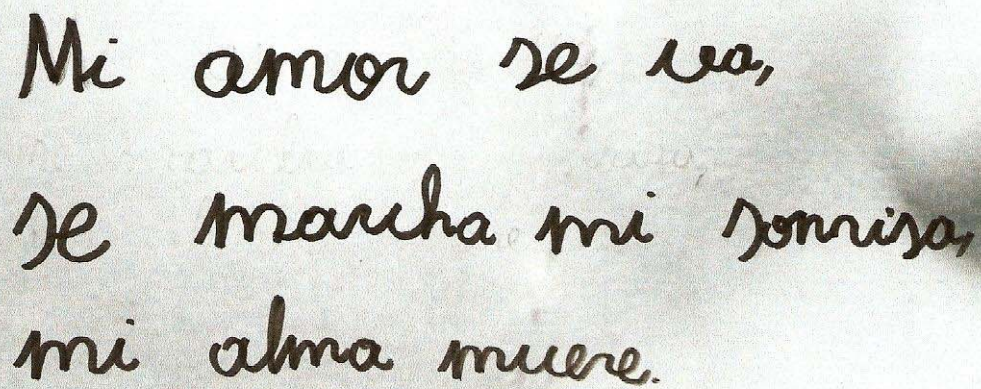 Mi amor se va,
se marcha mi sonrisa,
mi alma muere.